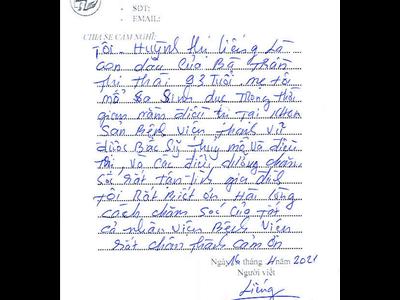 - SĐT:
- EMAIL:
CHIA SẺ CẢM NGHĨ:
Tôi - Huỳnh thị Liếng Là
con dâu của Bà Trần
Thị Thái 93 Tuổi mẹ tôi
mổ Sa Sinh dục Trong thời
gian nằm điều trị Tại Khoa
Sản Bệnh Viện Thanh Vũ
được Bác Sỹ Thuy mổ Và điều
trị, Và Các điều dưỡng chăm
Sóc Rất Tận Tình gia đình
Tôi Rất Biết ơn Hài Lòng
cách chăm Sóc Của Tất
cả nhân Viên Bệnh Viện
Rất chân thành cảm ơn
Ngày 16 tháng 4 năm 2021
Người viết
Liếng